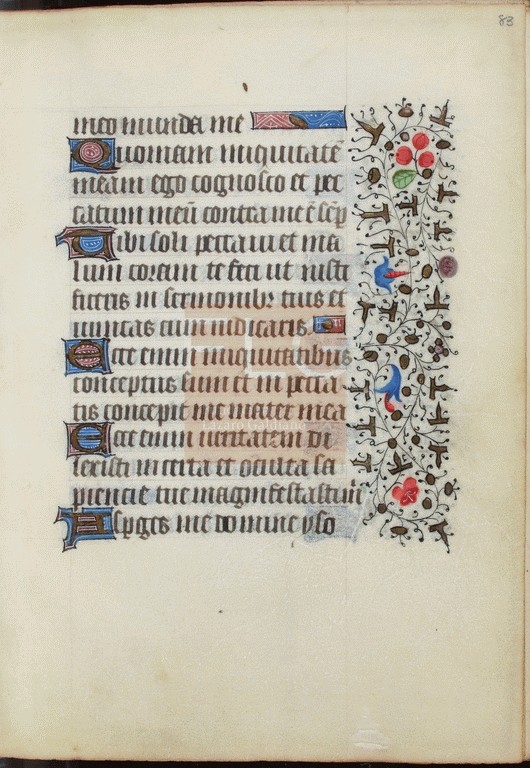 83
meo munda me
Quoniam iniquitatē
meam ego cognosco et pec
catum meū contra me ē sēp
Tibi soli peccaui et ma
lum coram te feci ut iusti
ficeris in sermonibꝫ tuis et
uincas cum iudicaris
Ecce enim iniquitatibus
conceptus sum et in pecca
tis concepit me mater mea
Ecce enim ueritatem di
lexisti incerta et oculta sa
piencie tue magnifestasti m̄
Asp̄ges me domine yso
FLG
Lázaro Galdiano